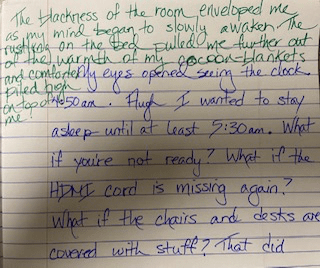 The blackness of the room enveloped me
as my mind began to slowly awaken. The
rustling on the bed pulled me further out
of the warmth of my cocoon-blankets
and comforters
piled high
on top of
me!
My eyes opened seeing the clock.
4:50am. Augh I wanted to stay
asleep until at least 5:30am. What
if you're not ready? What if the
HDMI cord is missing again?
What if the chairs and desks are
covered with stuff? That did